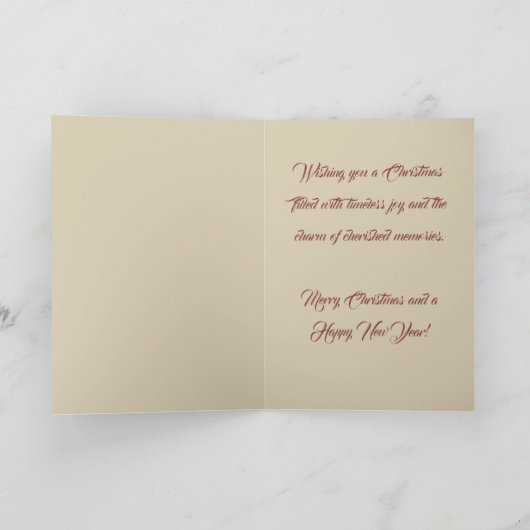 Wishing you a Christmas
filled with timeless joy, and the
charm of cherished memories.
Merry Christmas and a
Happy New Year!